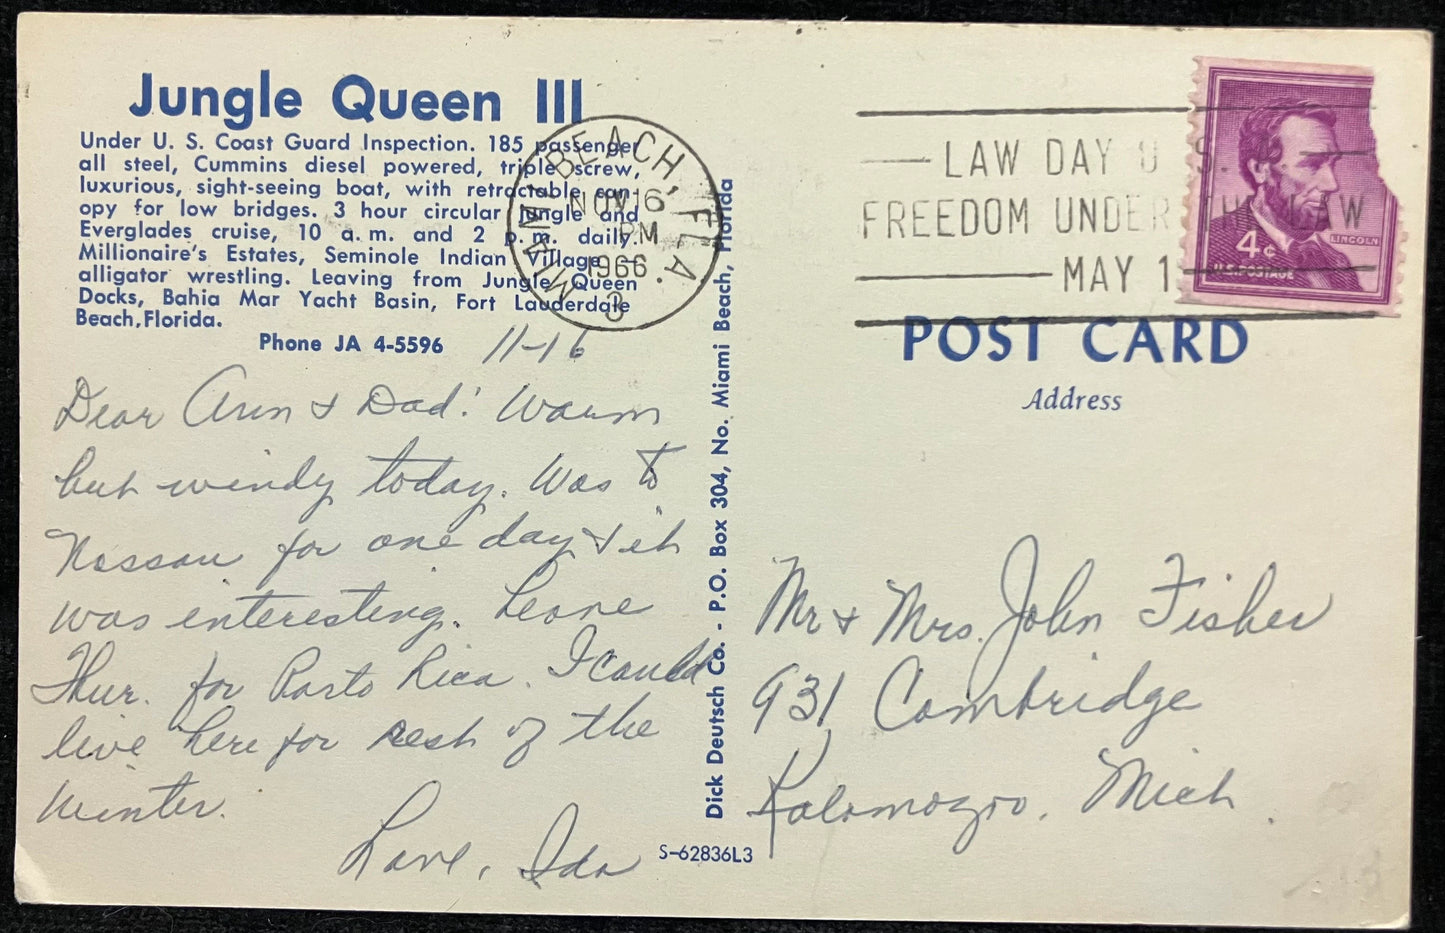 Jungle Queen III
Under U. S. Coast Guard Inspection. 185 passenger
all steel, Cummins diesel powered, triple screw,
luxurious, sight-seeing boat, with retractable can-
opy for low bridges. 3 hour circular jungle and
Everglades cruise, 10 a. m. and 2 p. m. daily.
Millionaire's Estates, Seminole Indian Village —
alligator wrestling. Leaving from Jungle Queen
Docks, Bahia Mar Yacht Basin, Fort Lauderdale
Beach, Florida.
Phone JA 4-5596
11-16
Dear Ann & Dad! Warm
but windy today. Was to
Nassau for one day & it
was interesting. Leave
Thur. for Porto Rica. I could
live here for rest of the
winter.
Love, Ida
S-62836L3
Dick Deutsch Co. - P.O. Box 304, No. Miami Beach, Florida
MIAMI BEACH, FLA.
NOV 16
PM
1966
LAW DAY U. S.
FREEDOM UNDER THE LAW
MAY 1
4¢
LINCOLN
U.S. POSTAGE
POST CARD
Address
Mr & Mrs. John Fisher
931 Cambridge
Kalamazoo, Mich